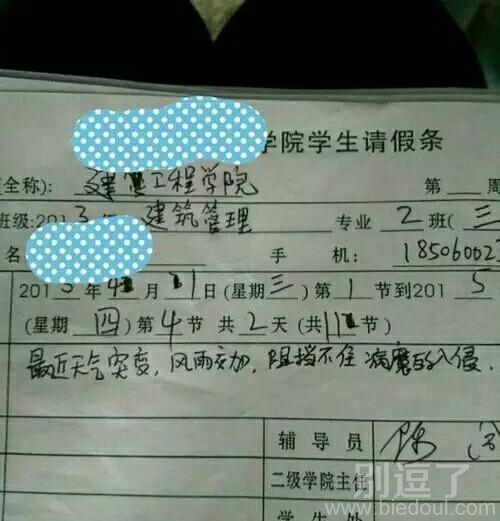 学院学生请假条
全称): 建筑工程学院 第 周
班级:2013年 建筑管理 专业 2 班(三
名 手 机: 18506002
2015年4月 1日(星期三)第1节到2015
(星期 四)第4节 共2天(共11节)
最近天气突变,风雨交加,阻挡不住病魔的入侵.
辅导员 陈
二级学院主任
学生处
别逗了
www.biedoul.com